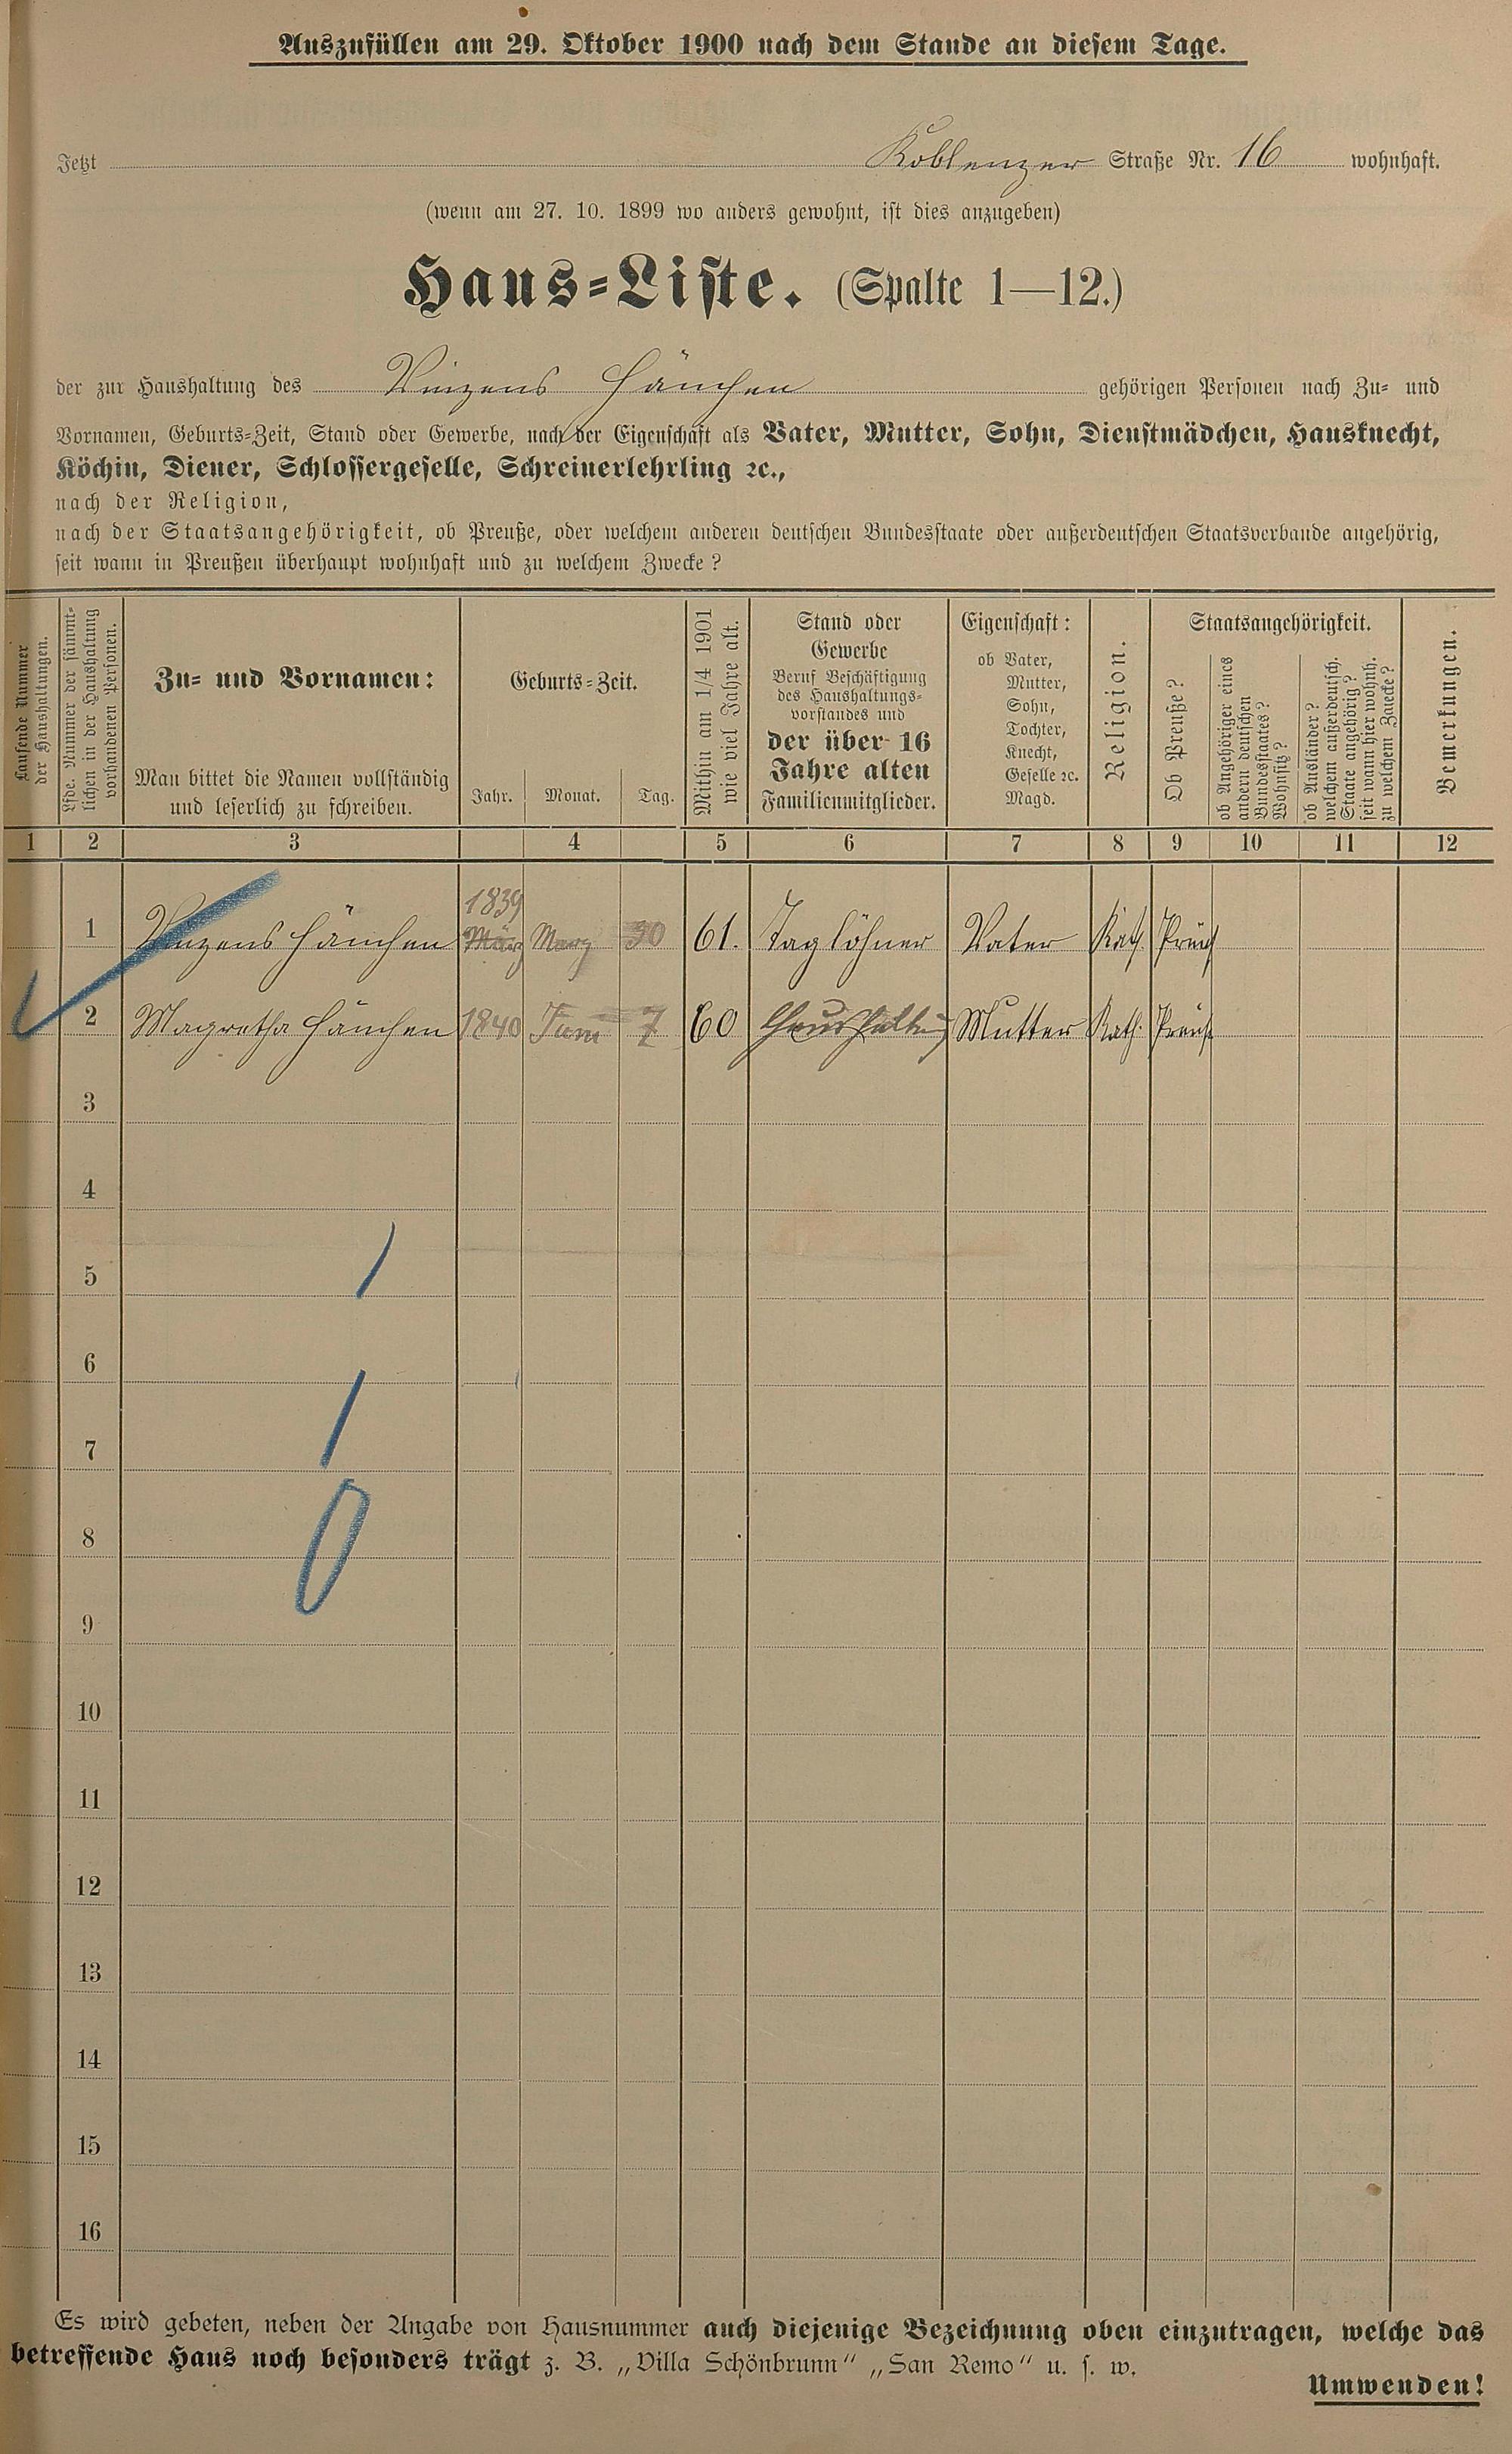 Auszufüllen am 29. Oktober 1900 nach dem Stande an diesem Tage.
Jetzt Koblenzer Straße Nr. 16 wohnhaft.
(wenn am 27. 10. 1899 wo anders gewohnt, ist dies anzugeben)
Haus=Liste. (Spalte 1—12.)
der zur Haushaltung des Vinzens Hänchen gehörigen Personen nach Zu= und
Vornamen, Geburts=Zeit, Stand oder Gewerbe, nach der Eigenschaft als Vater, Mutter, Sohn, Dienstmädchen, Hausknecht,
Köchin, Diener, Schlossergeselle, Schreinerlehrling ꝛc.,
nach der Religion,
nach der Staatsangehörigkeit, ob Preuße, oder welchem anderen deutschen Bundesstaate oder außerdeutschen Staatsverbande angehörig,
seit wann in Preußen überhaupt wohnhaft und zu welchem Zwecke?
Laufende Nummer
der Haushaltungen.
Lfde. Nummer der sämmt=
lichen in der Haushaltung
vorhandenen Personen.
Zu= und Vornamen:
Man bittet die Namen vollständig
und leserlich zu schreiben.
Geburts=Zeit.
Jahr. Monat. Tag.
Mithin am 1/4 1901
wie viel Jahre alt.
Stand oder
Gewerbe
Beruf Beschäftigung
des Haushaltungs=
vorstandes und
der über 16
Jahre alten
Familienmitglieder.
Eigenschaft:
ob Vater,
Mutter,
Sohn,
Tochter,
Knecht,
Geselle ꝛc.
Magd.
Religion.
Staatsangehörigkeit.
Ob Preuße?
ob Angehöriger eines
andern deutschen
Bundesstaates?
Wohnsitz?
ob Ausländer?
welchem außerdeutsch.
Staate angehörig?
seit wann hier wohnh.
zu welchem Zwecke?
Bemerkungen.
1 2 3 4 5 6 7 8 9 10 11 12
1839
1 Vinzens Hänchen März Marz 30 61. Taglöhner Vater Kath. Preuß
2 Magretha Hänchen 1840 Juni 7 60 Haushaltung Mutter Kath. Preuß
3
4
5
6
7
8
9
10
11
12
13
14
15
16
Es wird gebeten, neben der Angabe von Hausnummer auch diejenige Bezeichnung oben einzutragen, welche das
betreffende Haus noch besonders trägt z. B. „Villa Schönbrunn“ „San Remo“ u. s. w.
Umwenden!